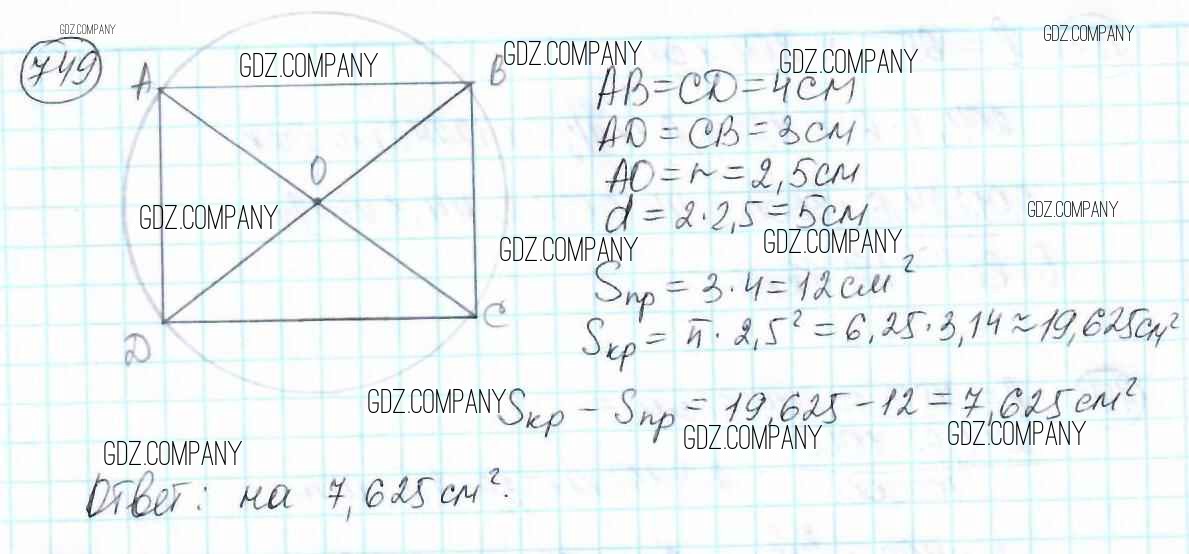 GDZ.COMPANY
749
GDZ.COMPANY
GDZ.COMPANY
GDZ.COMPANY
GDZ.COMPANY
A
B
AB = CD = 4 см
AD = CB = 3 см
O
AO = r = 2,5 см
d = 2 · 2,5 = 5 см
GDZ.COMPANY
GDZ.COMPANY
GDZ.COMPANY
GDZ.COMPANY
Sпр = 3 · 4 = 12 см²
D
C
Sкр = π · 2,5² = 6,25 · 3,14 ≈ 19,625 см²
GDZ.COMPANY
Sкр − Sпр = 19,625 − 12 = 7,625 см²
GDZ.COMPANY
GDZ.COMPANY
GDZ.COMPANY
Ответ: на 7,625 см².